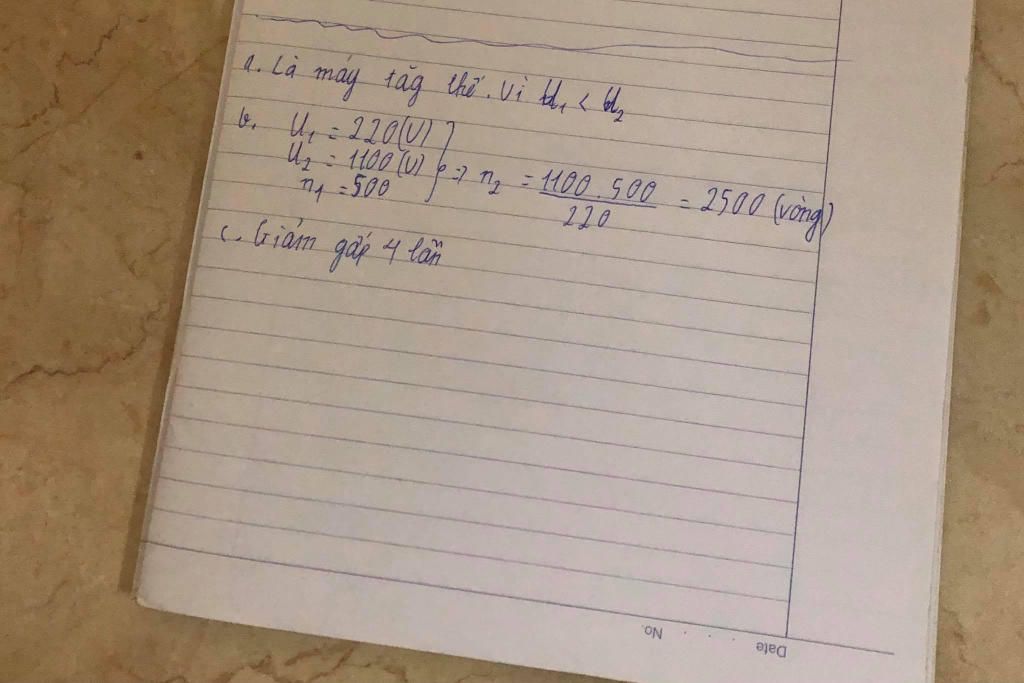 a. Là máy tăg thế. Vì U₁ < U₂
b. U₁ = 220(V)
U₂ = 1100(V)
n₁ = 500
=> n₂ = 1100 . 500 / 220 = 2500 (vòng)
c. Giảm gấp 4 lần
No.
Date